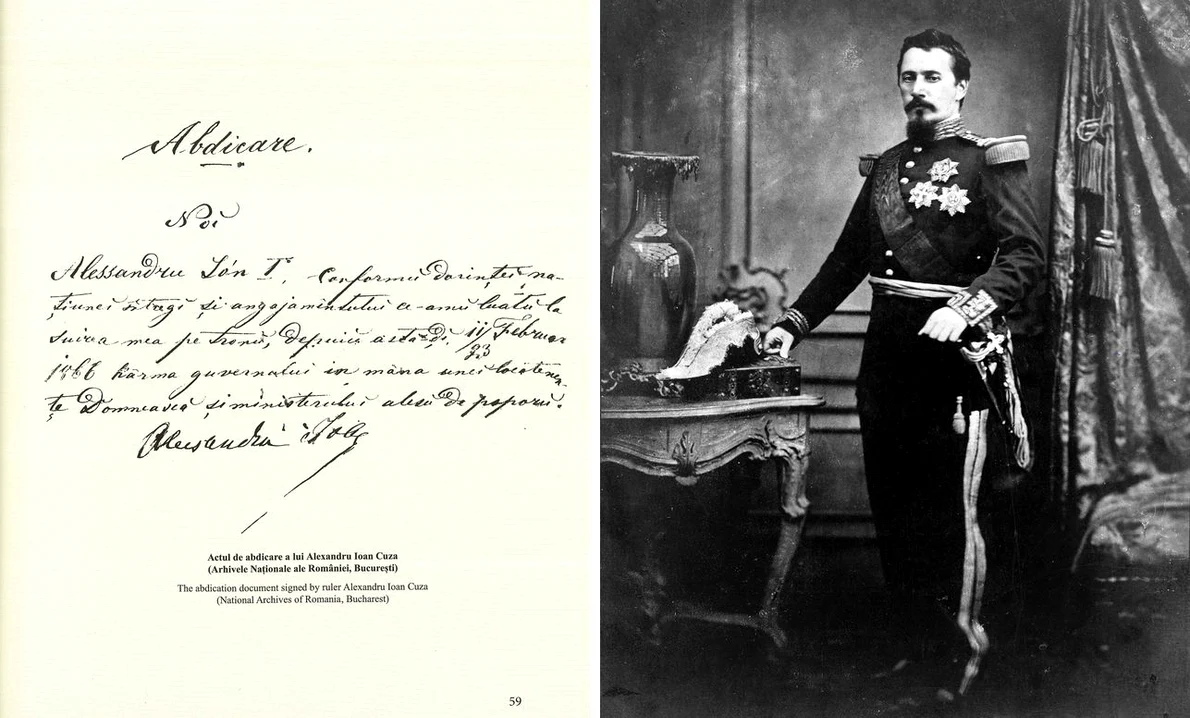 Abdicare.
Noi
Alessandru Ión Iº, Conformŭ dorinței na-
țiunei întregi si angajamentului ce-amŭ luatŭ la
suirea mea pe tronŭ, depuiŭ astăḑi, 11/23 Februar
1866 kârma guvernului in mâna unei locotenen-
țe Domnească și ministerului alesŭ de poporŭ.
Alessandru Ioan
Actul de abdicare a lui Alexandru Ioan Cuza
(Arhivele Naționale ale României, București)
The abdication document signed by ruler Alexandru Ioan Cuza
(National Archives of Romania, Bucharest)
59